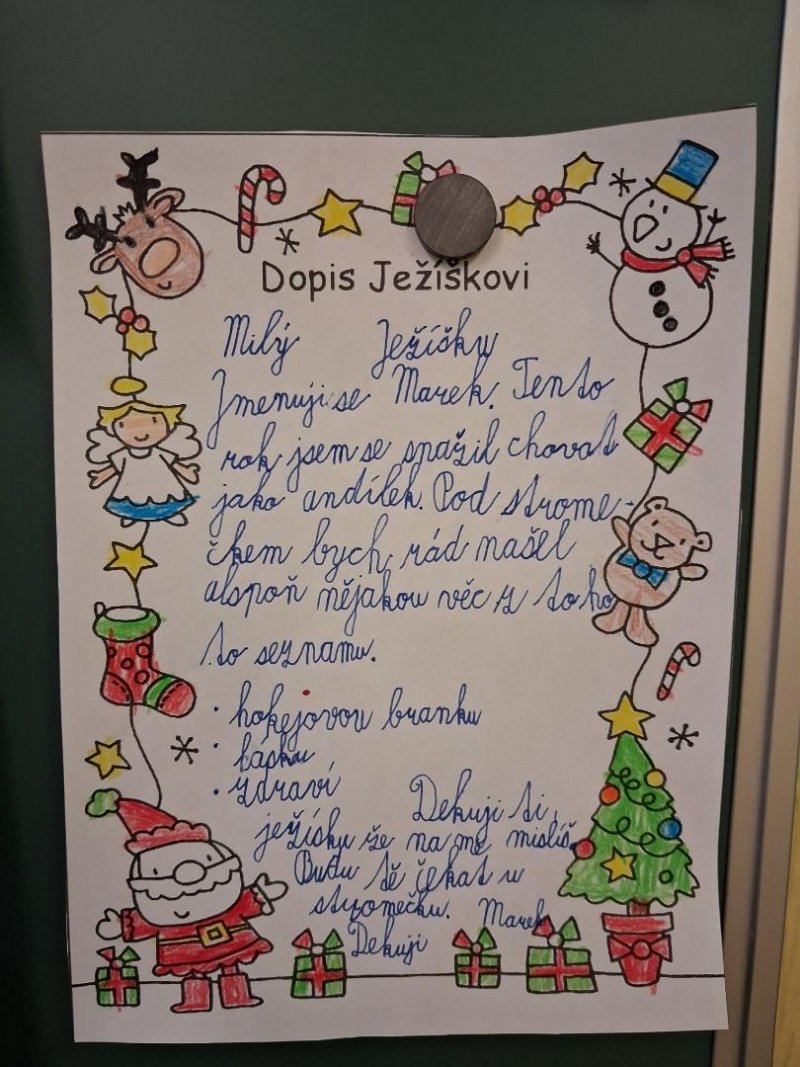 Dopis Ježíškovi
Milý Ježíšku
Jmenuji se Marek. Tento
rok jsem se snažil chovat
jako andílek. Pod strome-
čkem bych rád našel
alspoň nějakou věc z toho
to seznamu.
• hokejovou branku
• lásku
• zdraví
Dekuji ti
ježísku že na me mislíš.
Budu tě čekat u
stromečku. Marek
Dekuji